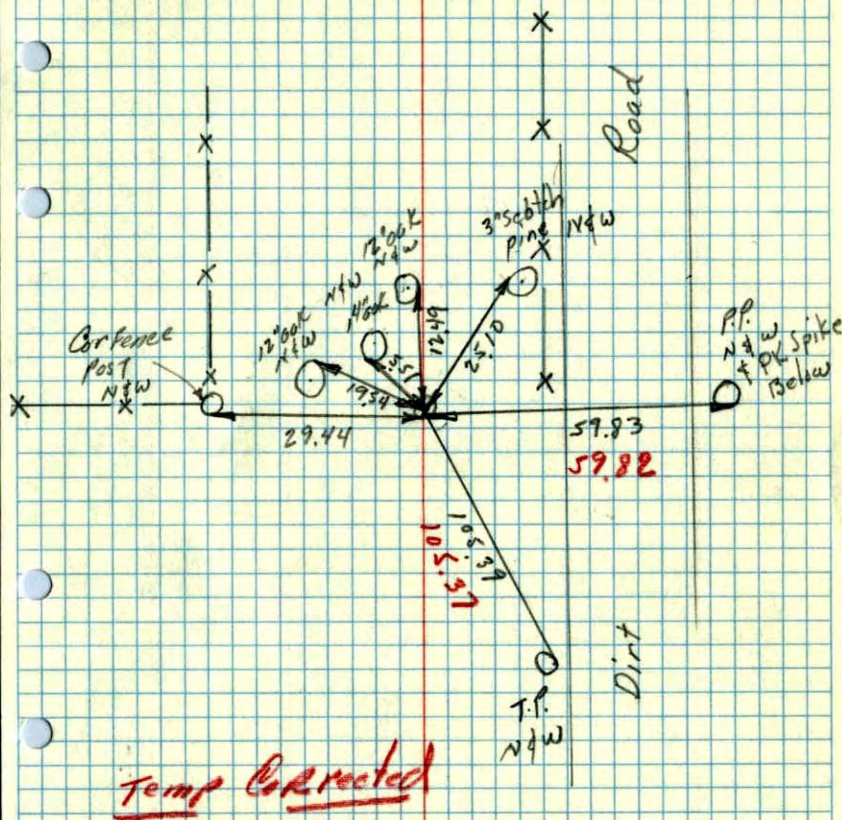 Road
3" Scotch
Pine N&W
12" oak
N&W
14" oak
N&W
12" oak
N&W
Cor fence
Post
N&W
P.P.
N&W
& PK Spike
Below
12.49
25.10
5.51
19.54
29.44
59.83
59.82
105.39
105.37
Dirt
T.P.
N&W
Temp Corrected